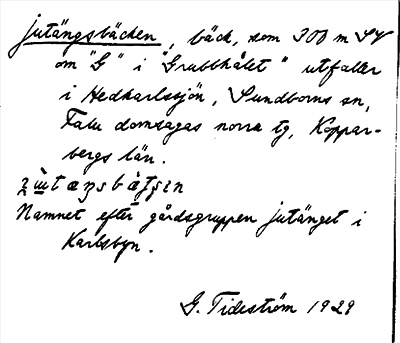 jutängsbäcken, bäck, som 300 m SV
om "G" i "Grubbhålet" utfaller
i Hedkarlssjön, Sundborns sn,
Falu domsagas norra tg, Koppar-
bergs län.
Namnet efter gårdsgruppen jutänget i
Karlsbyn.
G. Tideström 1929